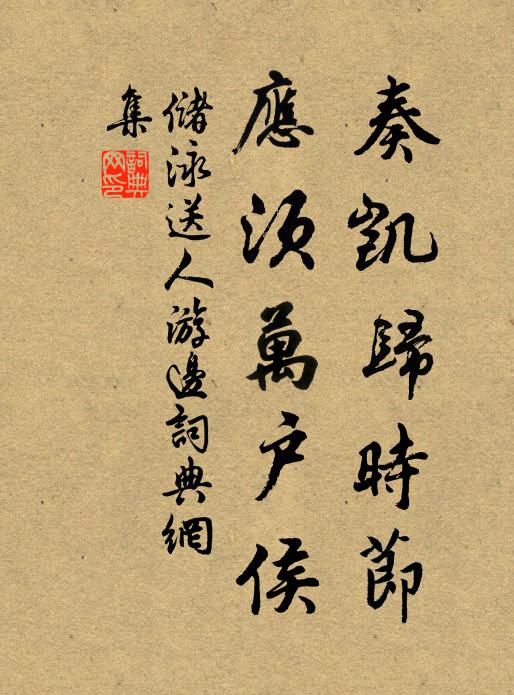 奏凱歸時節
應須萬户侯
儲泳送人游邊詞典網
集
詞典网印